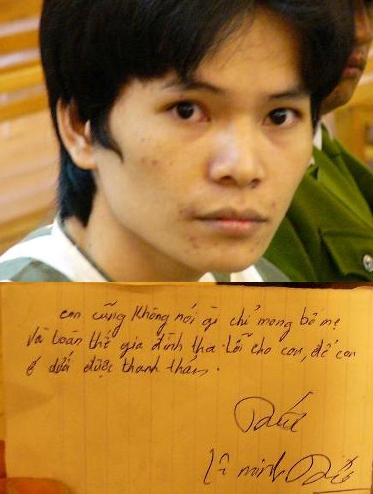 con cũng không nói gì chỉ mong bố mẹ
và toàn thể gia đình tha lỗi cho con, để con
ở dưới được thanh thản.